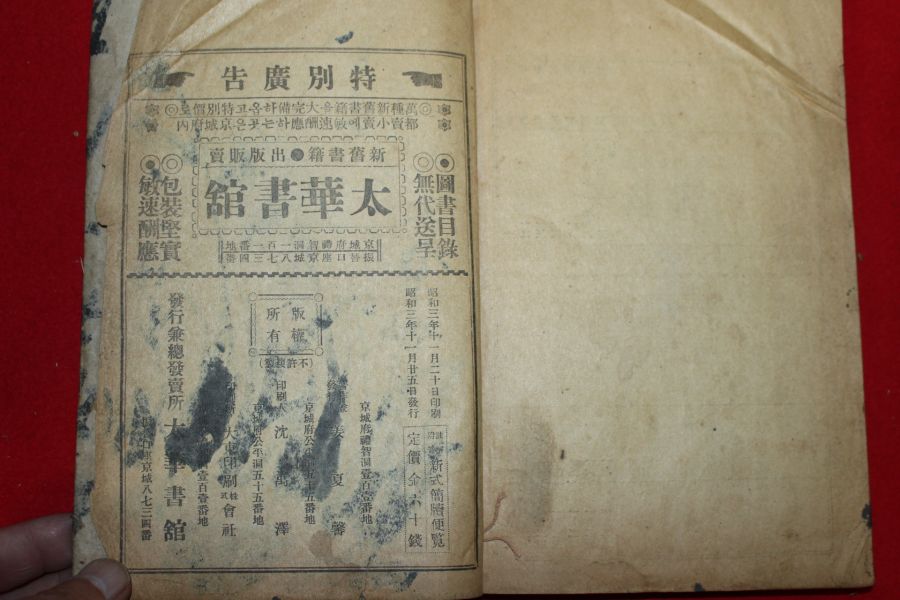 特別廣告
萬種新舊書籍을大完備하옵고特別價로
都賣小賣에敏速酬應하는곳은京城府內
新舊書籍●出版販賣
太華書舘
京城府禮智洞一百一番地
振替口座京城八七三四番
◉圖書目錄
◎無代送呈
◎包裝堅實
◉敏速酬應
昭和三年十一月二十日印刷
昭和三年十一月廿五日發行
新式簡牘便覧
定價金六十錢
版權
所有
(不許複製)
京城府禮智洞壹百壹番地
姜夏馨
京城府公平洞五十五番地
印刷人 沈禹澤
京城府公平洞五十五番地
大東印刷株式會社
百壹番地
發行兼總發賣所 太華書舘
座京城八七三四番